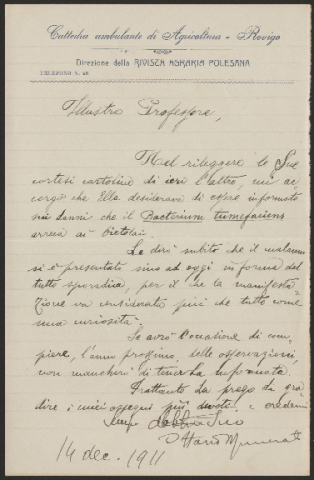 Cattedra ambulante di Agricoltura - Rovigo
Direzione della RIVISTA AGRARIA POLESANA
TELEFONO N. 48
Illustre Professore,
Nel rileggere le Sue
cortesi cartoline di ieri l'altro, mi ac-
corgo che Ella desiderava di essere informato
sui danni che il Bacterium tumefaciens
arreca ai Bietolai.
Le dirò subito che il malanno
si è presentato sino ad oggi in forma del
tutto sporadica, per il che la manifesta-
zione va considerata più che tutto come
una curiosità.
Se avrò l'occasione di com-
piere, l'anno prossimo, delle osservazioni,
non mancherò di tenerla informata.
Frattanto La prego di gra-
dire i miei ossequi più devoti e credermi
Suo
Ottavio Munerati
14 dec. 1911